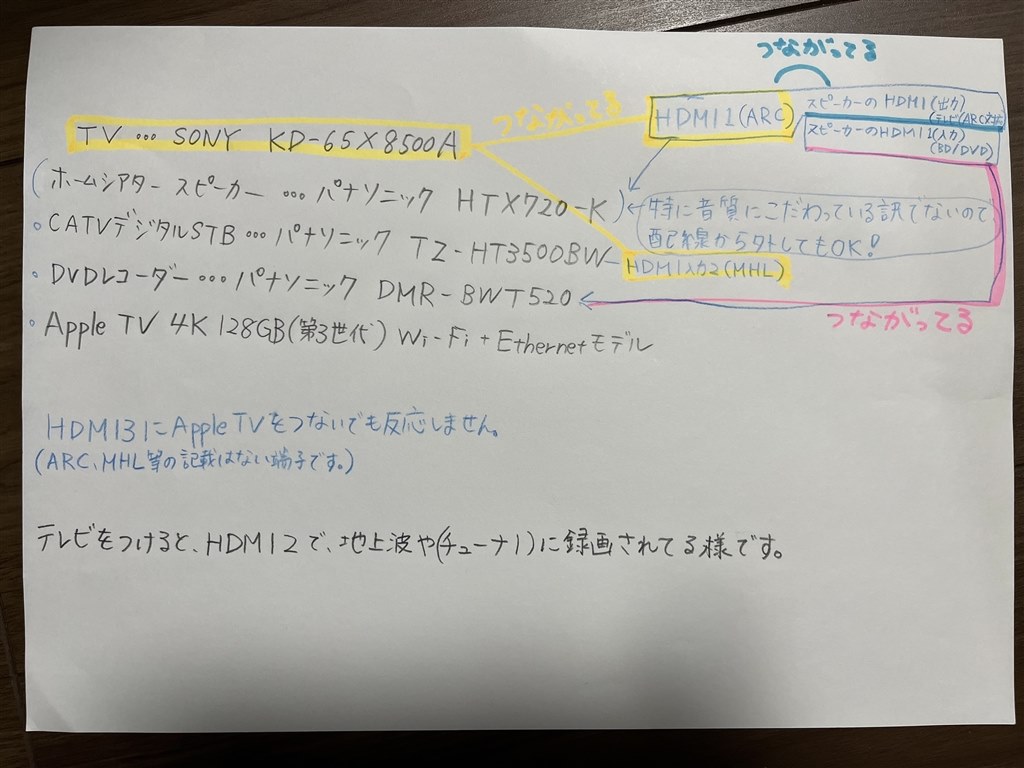 つながってる
TV … SONY KD-65X8500A
つながってる
HDMI1(ARC)
スピーカーのHDMI(出力)
(テレビ(ARC対応)
スピーカーのHDMI1(入力)
(BD/DVD)
(ホームシアター スピーカー … パナソニック HTX720-K)
特に音質にこだわっている訳でないので
配線から外してもOK!
・CATVデジタルSTB … パナソニック TZ-HT3500BW
HDMI入力2(MHL)
・DVDレコーダー … パナソニック DMR-BWT520
つながってる
・Apple TV 4K 128GB(第3世代) Wi-Fi + Ethernetモデル
HDMI3にApple TVをつないでも反応しません。
(ARC、MHL等の記載はない端子です。)
テレビをつけると、HDMI2で、地上波や(チューナ1)に録画されてる様です。